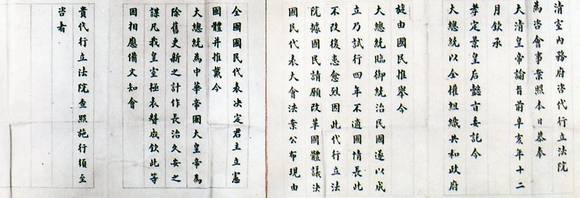 清室內務府咨代行立法院
為咨會事案照本日恭奉
大清皇帝諭旨前辛亥年十二
月欽承
孝定景皇后懿旨委託今
大總統以全權組織共和政府
旋由國民推舉今
大總統臨御統治民國遂以成
立乃試行四年不適國情長此
不改後患愈烈因此代行立法
院據國民請願改革國體議決
國民代表大會法案公布現由
全國國民代表決定君主立憲
國體並推戴今
大總統為中華帝國大皇帝為
除舊更新之計作長治久安之
謀凡我皇室極表贊成欽此等
因相應備文知會
貴代行立法院查照施行須至
咨者